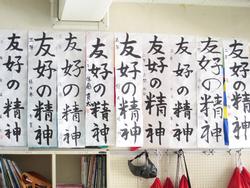 友好の精神
友好の精神
友好の精神
友好の精神
友好の精神
友好の精神
友好の精神
友好の精神
友好の精神